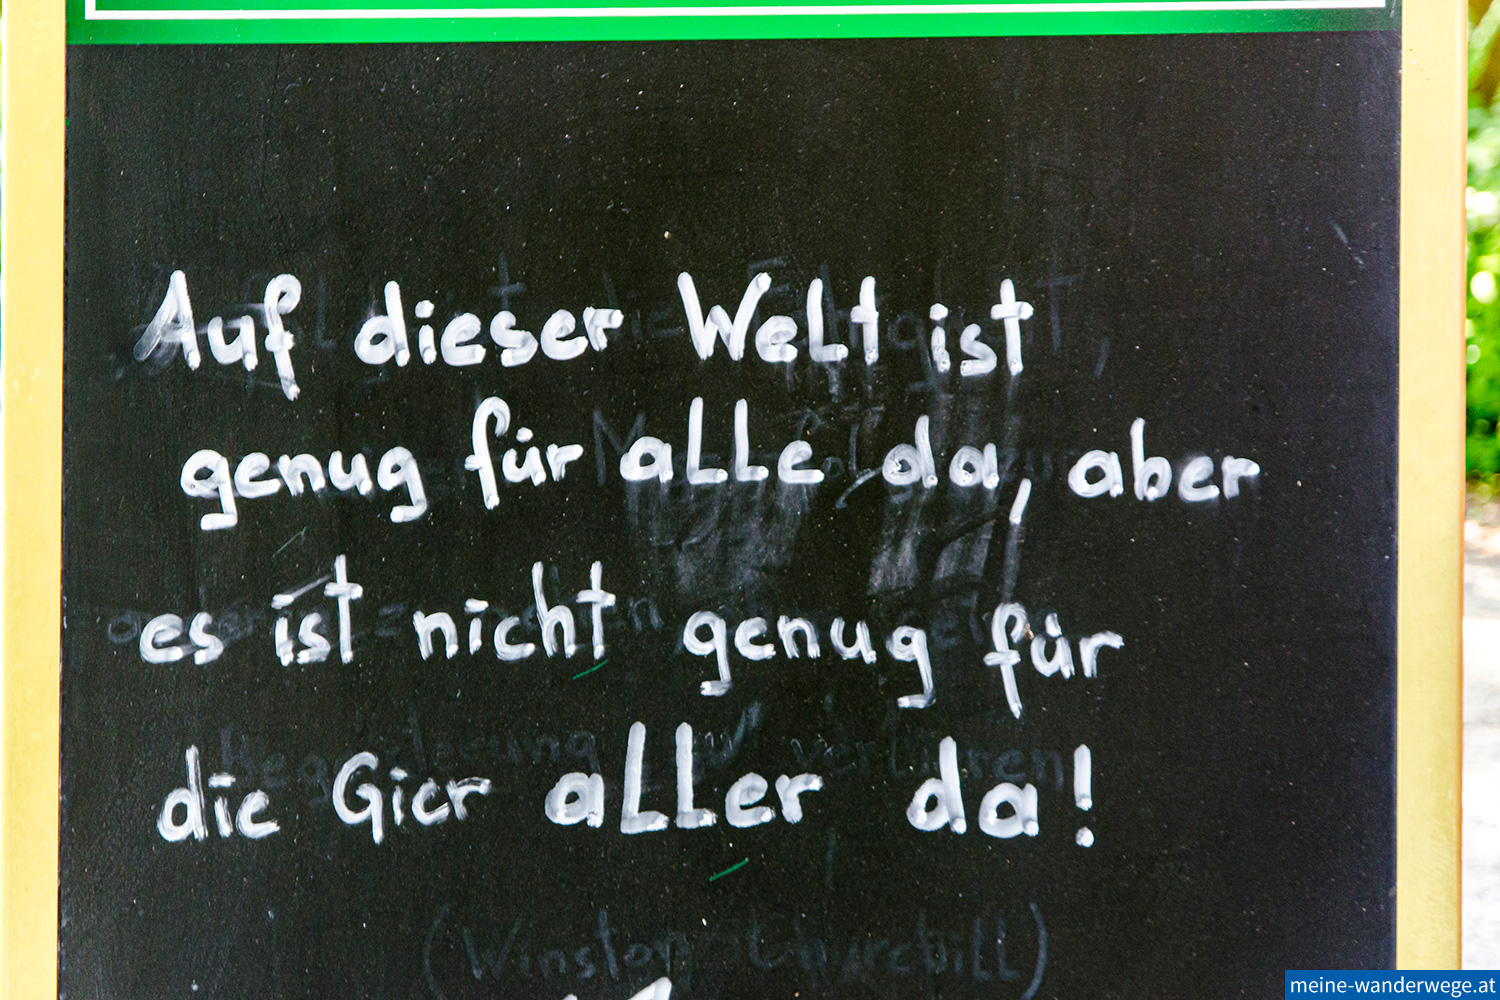 Auf dieser Welt ist
genug für alle da, aber
es ist nicht genug für
die Gier aller da!
(Winston Churchill)
meine-wanderwege.at